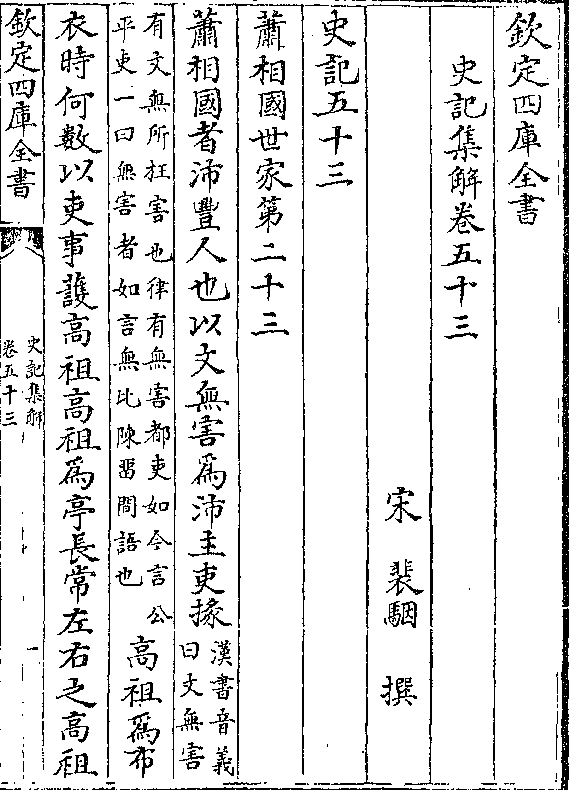 欽定四庫全書
史記集解卷五十三
宋 裴駰 撰
史記五十三
蕭相國世家第二十三
蕭相國者沛豐人也以文無害爲沛主吏掾
漢書音義
曰文無害
有文無所枉害也律有無害都吏如今言公
平吏一曰無害者如言無比陳留間語也
高祖爲布
衣時何數以吏事護高祖高祖爲亭長常左右之高祖
欽定四庫全書
史記集解
卷五十三
一